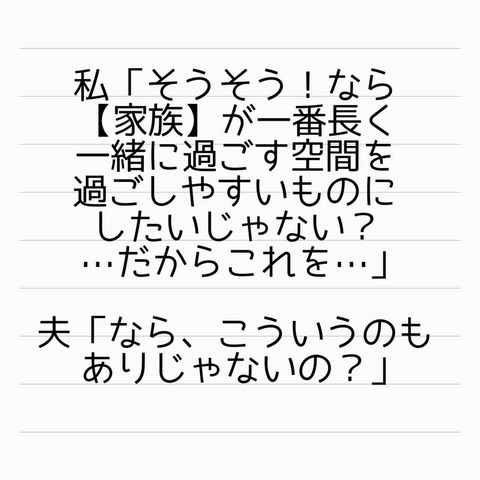 私「そうそう！なら
【家族】が一番長く
一緒に過ごす空間を
過ごしやすいものに
したいじゃない？
…だからこれを…」
夫「なら、こういうのも
ありじゃないの？」